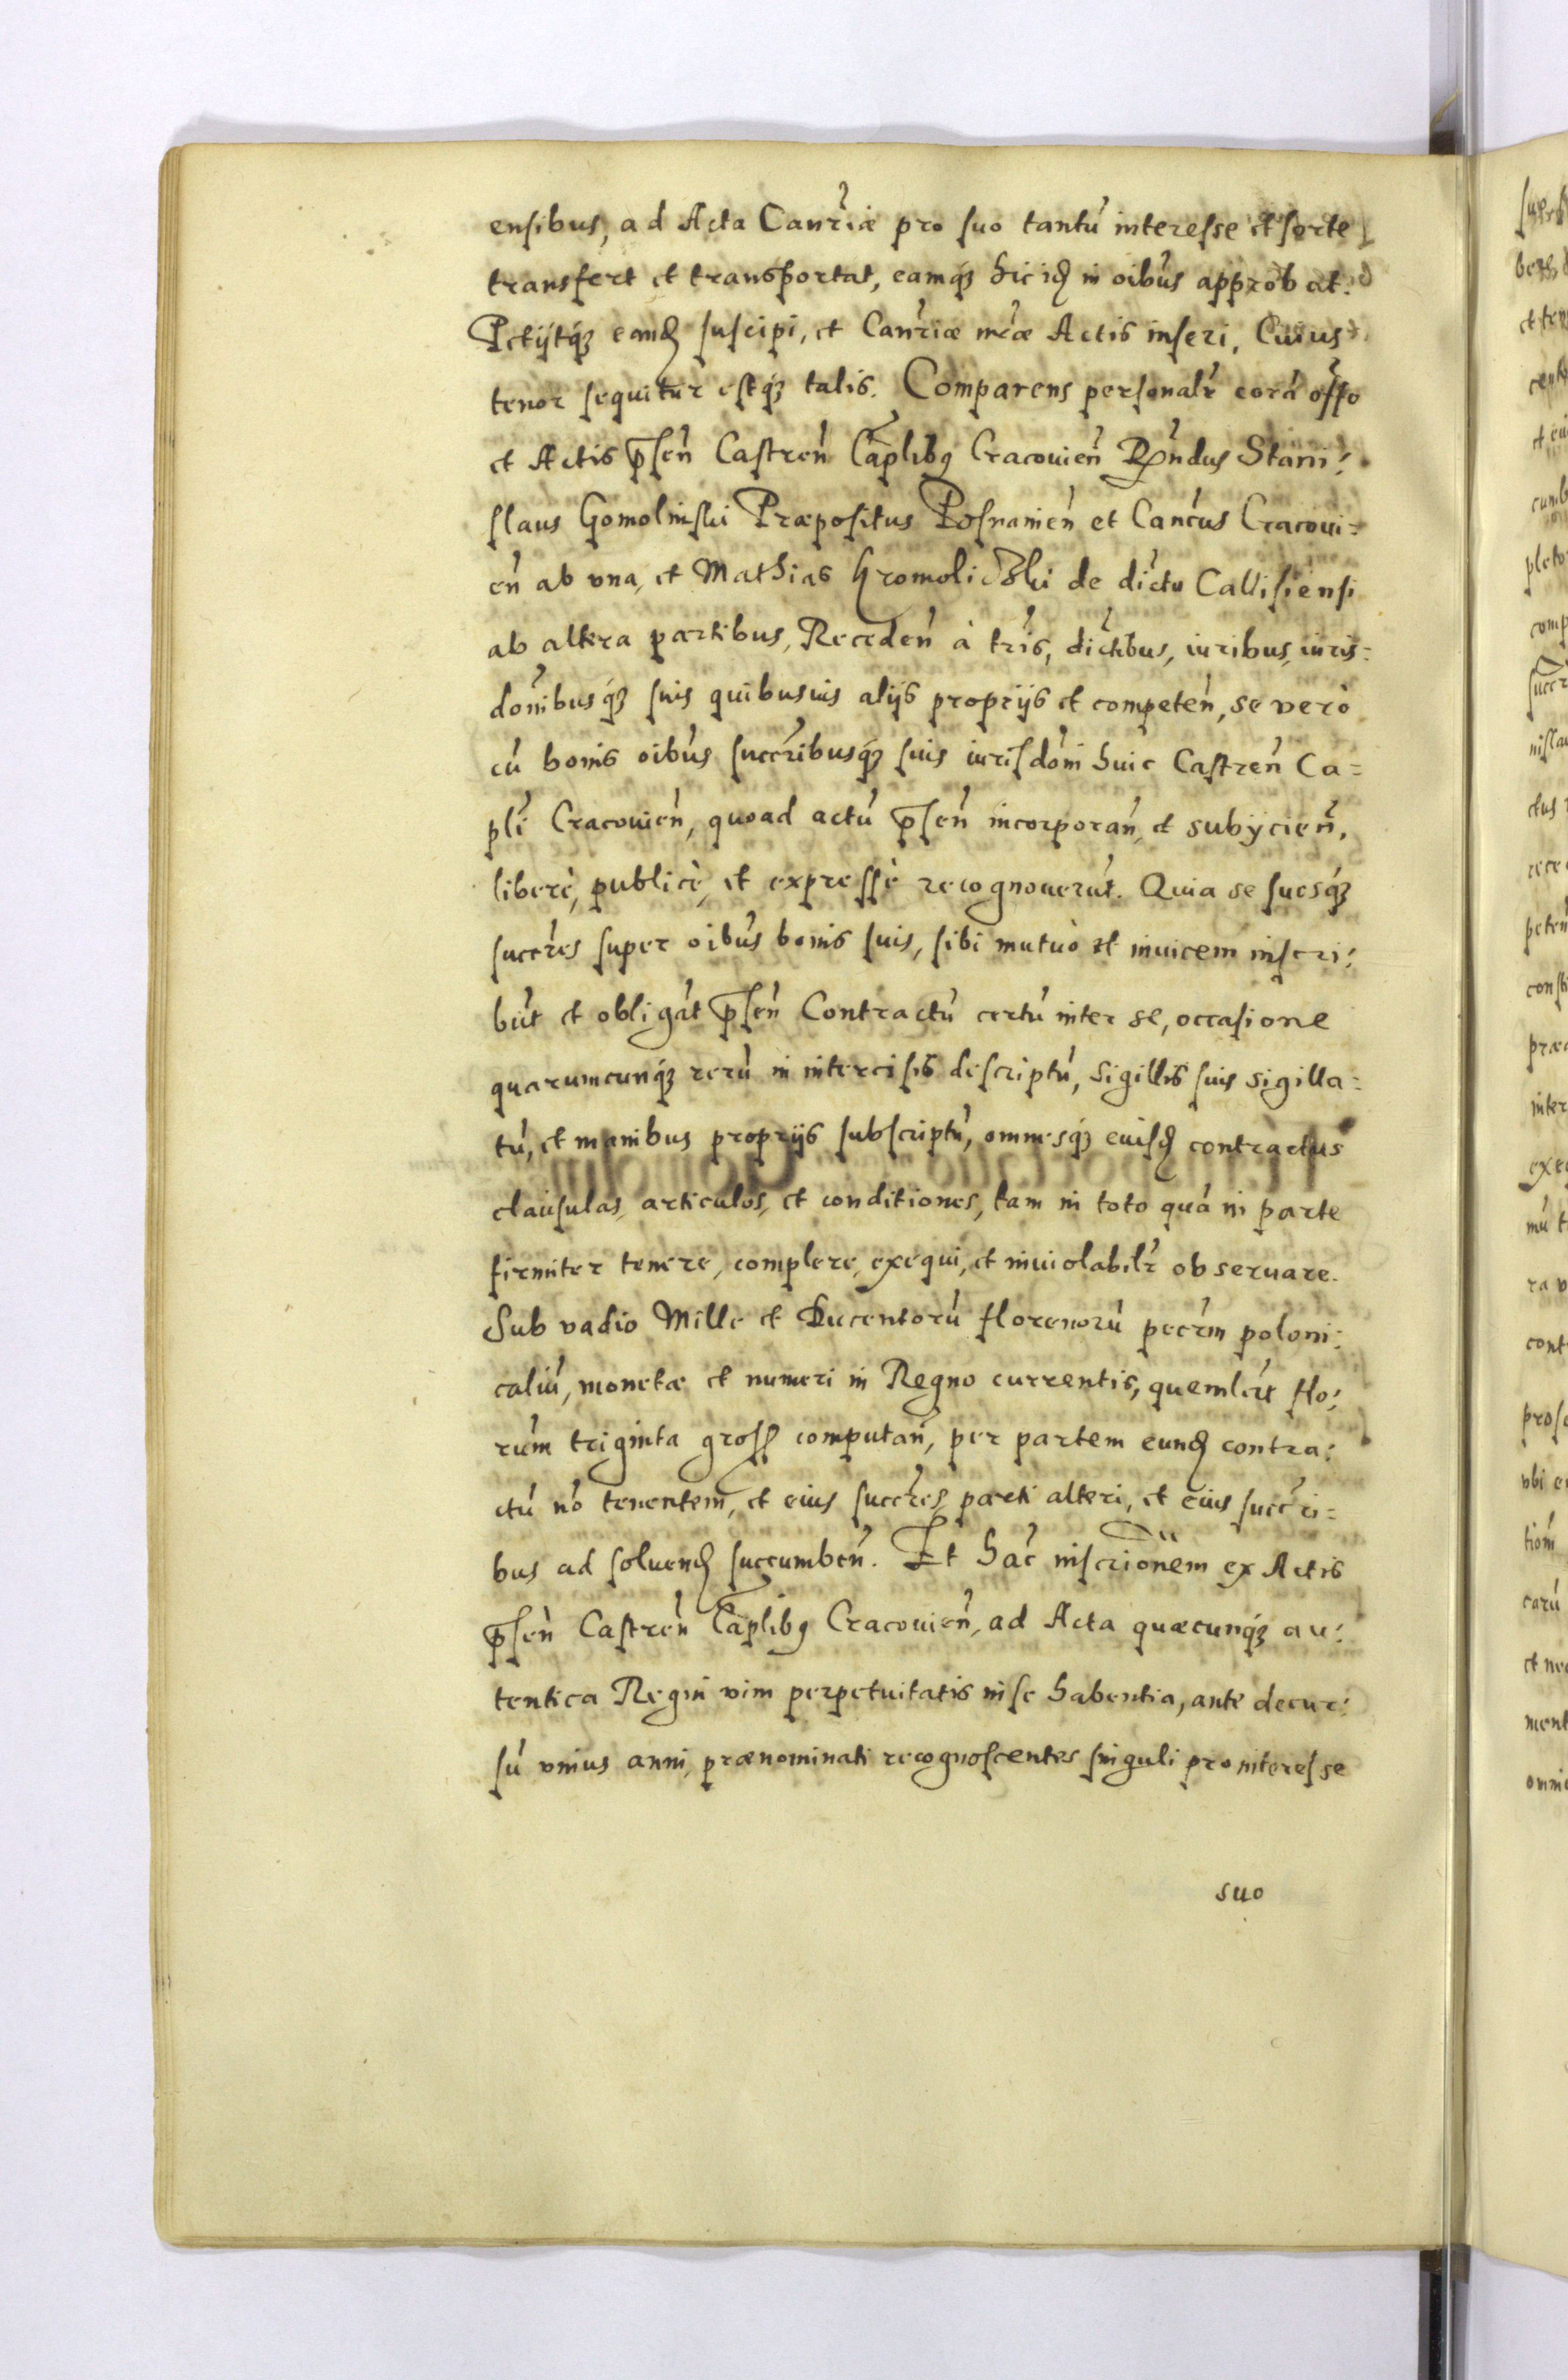 ensibus, ad Acta Canr̃iæ pro suo tantũ interesse et sorte
transfert et transportat, eamq́ꝫ hic iꝺ in oibus approbat.
Petijtq́ꝫ eanꝺ suscipi, et Canr̃iæ meæ Actis inseri, Cuius
tenor sequitur estq́ꝫ talis. Comparens personalr̃ corã offo
et Actis p̃sen̄ Castren̄ Caplibꝰ Cracouien̄ Rn̄dus Stani:
slaus Gomolinski Præpositus Posnanien̄ et Can̄cus Cracoui=
en̄ ab vna, et Mathias Gromolic ski de dictu Callisiensi
ab altera partibus, Receden̄ à tr̃is, dictibus, iuribus, iuris=
dom̃ibusq́ꝫ suis quibusuis alijs proprijs et competen̄, se verò
cũ bonis oibus succr̃ibusq́ꝫ suis iurisdoni huic Castren̄ Ca=
pli Cracouien̄, quoad actũ p̃sen̄ incorporan̄, et subijcien̄,
liberè, publicè, et expressè recognouerũt. Quia se suosq́ꝫ
succr̃es super oibus bonis suis, sibi mutuò et inuicem inscri:
bũt et obligãt p̃sen̄ Contractũ certũ inter se, occasione
quarumcunq́ꝫ rerũ in intercisis descriptũ, sigillis suis sigilla=
tũ, et manibus proprijs subscriptũ, omnesq́ꝫ eiusꝺ contractus
clausulas, articulos, et conditiones, tam in toto quã in parte
firmiter tenere, complere, exequi, et inuiolabilr̃ obseruare.
Sub vadio Mille et Ducentorũ florenorũ pecr̃m poloni:
caliũ, monetæ et numeri in Regno currentis, quemlibt flo:
rũm triginta grosꝭ computan̄, per partem eunꝺ contra:
ctũ nõ tenentem, et eius succr̃es parti alteri, et eius succr̃i=
bus ad soluenꝺ succumben̄. Et hãc inscrionem ex Actis
p̃sen̄ Castren̄ Caplibꝰ Cracouien̄, ad Acta quæcunq́ꝫ au:
tentica Regni vim perpetuitatis in se habentia, ante decur:
sũ vnius anni, prænominati recognoscentes singuli pro interesse
suo